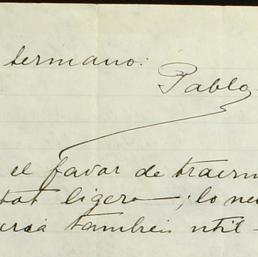 hermano:
Pablo
el favor de traerm
ligero; lo ne
tambien util